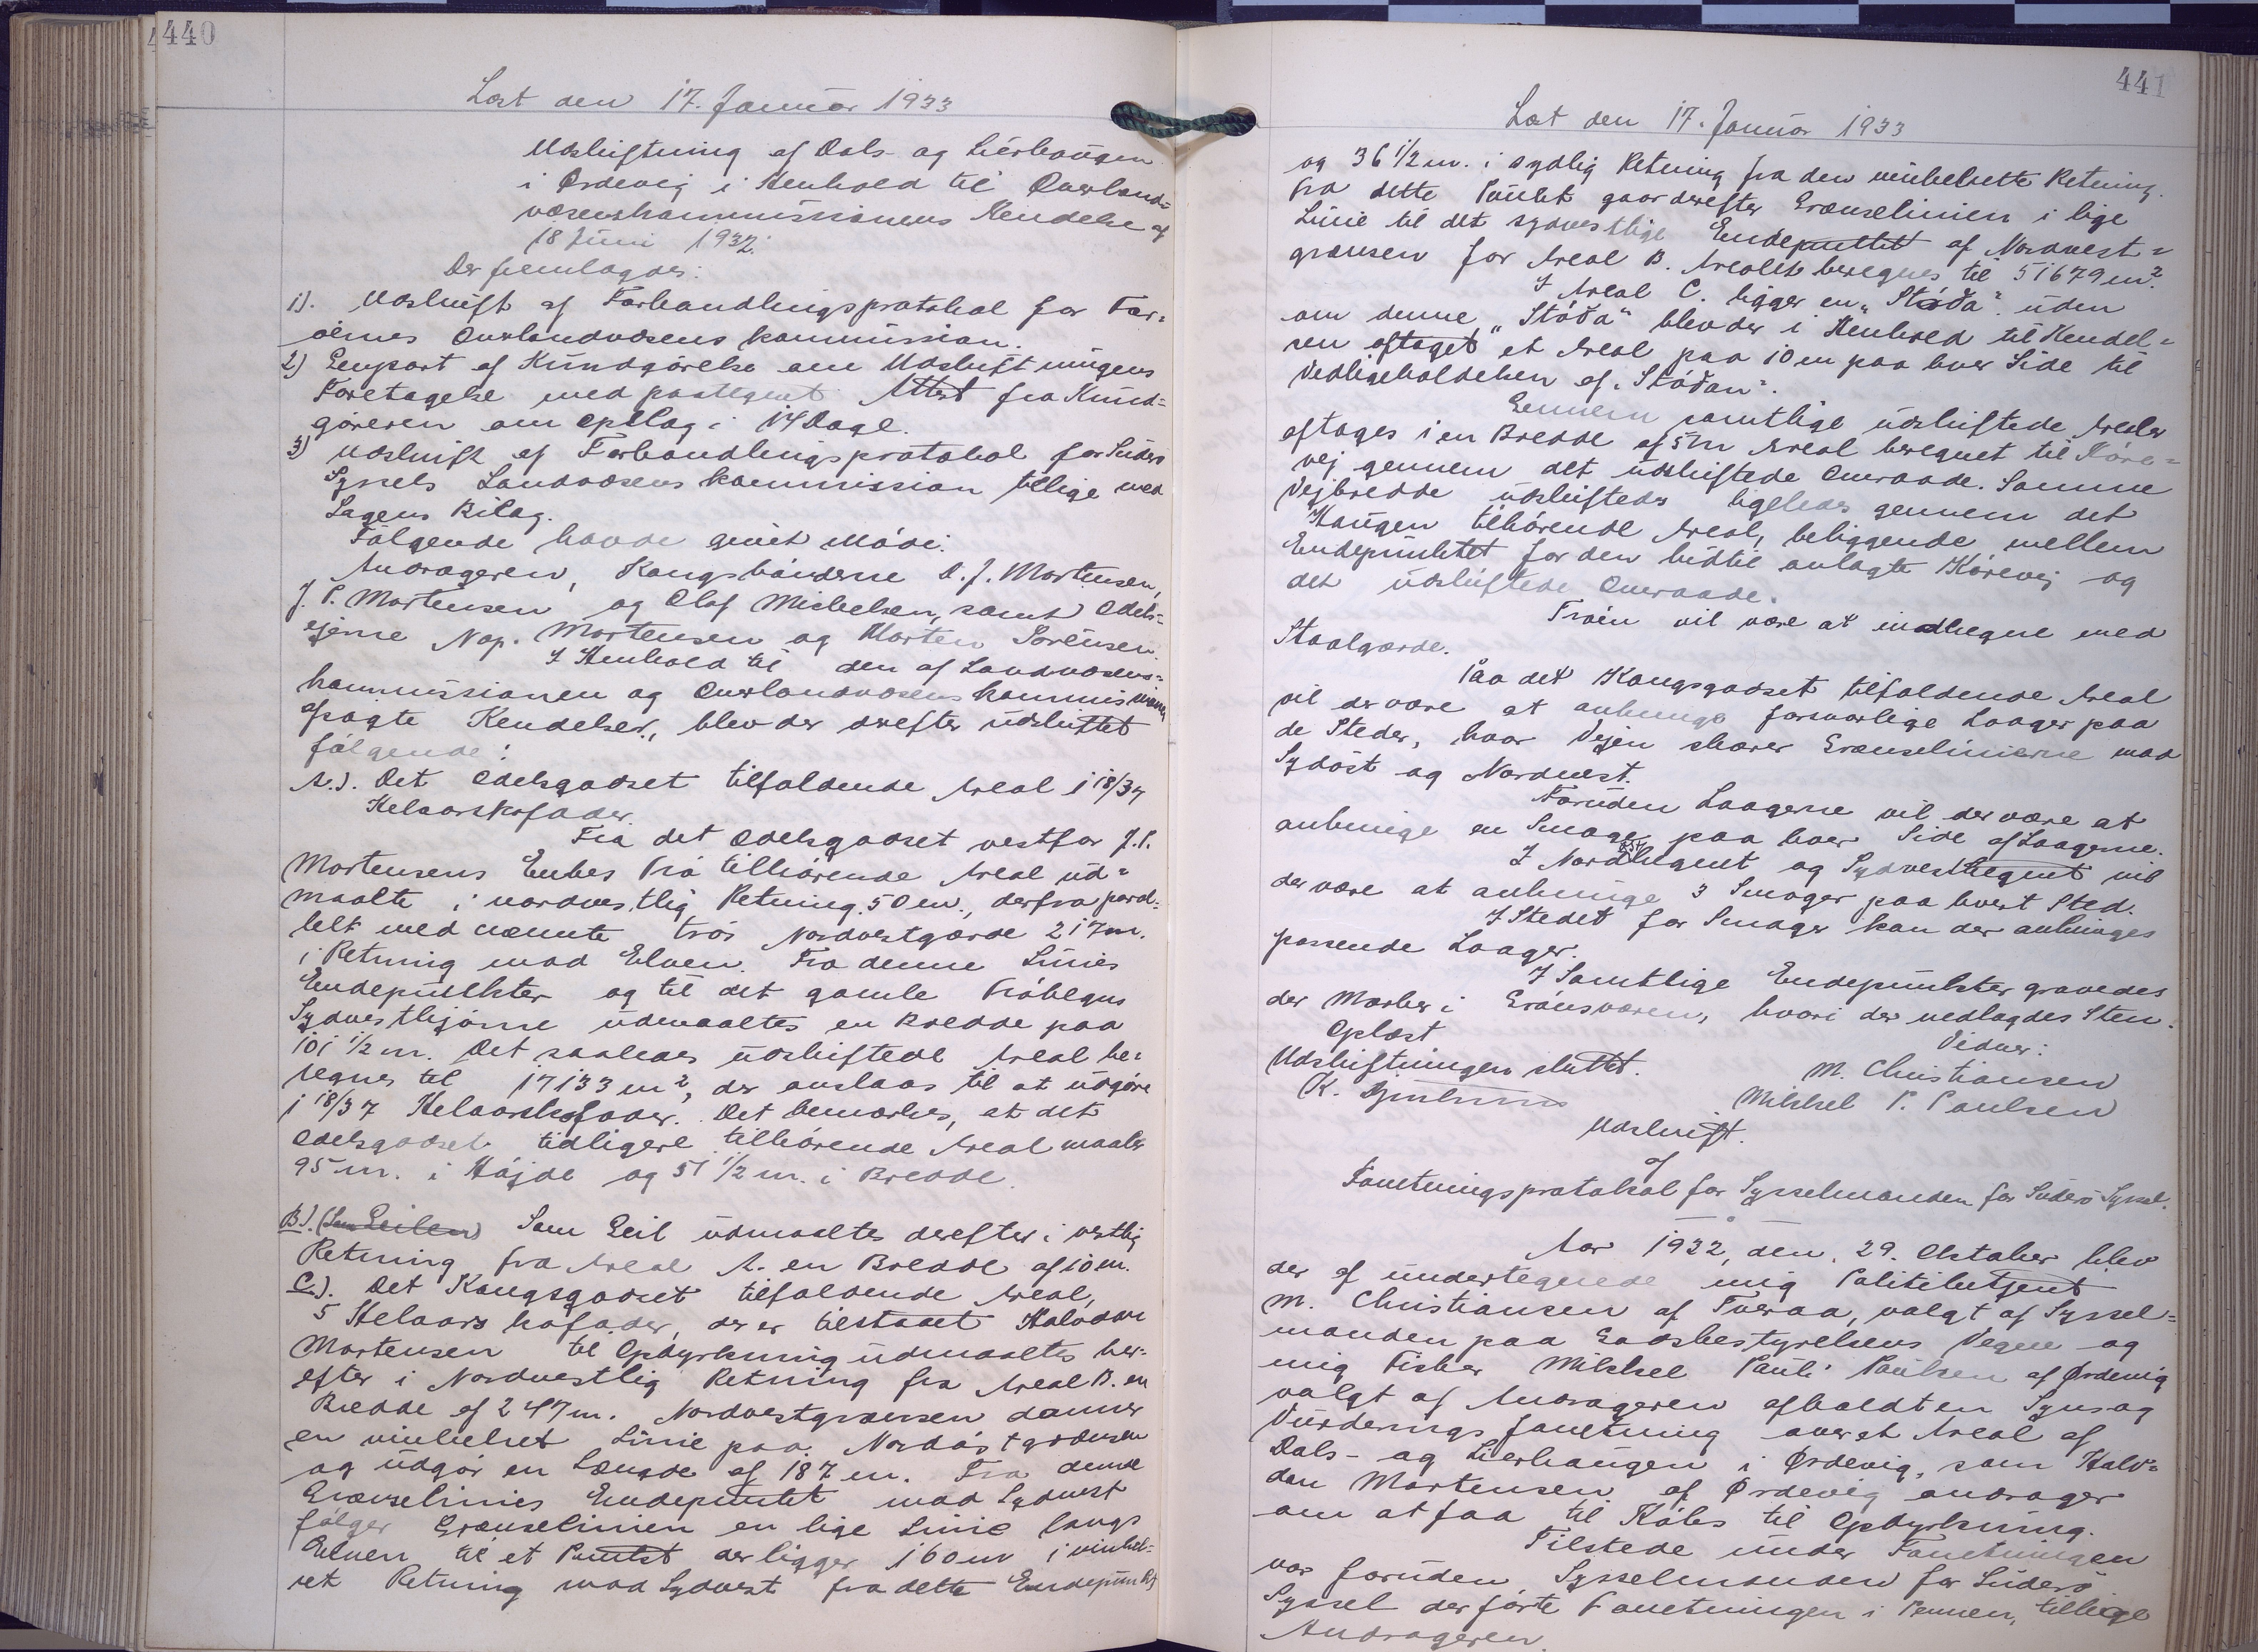 440
Læst den 17. Januar 1933
Udskiftning af Dals- og Lierhaugen
i Ørdevig i Henhold til Overland=
væsenskommissionens Kendelse af
18 Juni 1932.
Der fremlagdes:
1). Udskrift af Forhandlingsprotokol for Fær=
øernes Overlandvæsenskommission.
2) Genpart af Kundgørelse om Udskiftningens
Foretagelse med paategnet Attest fra Kund=
gøreren om Opslag i 14 Dage.
3) Udskrift af Forhandlingsprotokol for Suderø
Syssels Landvæsenskommission tillige med
Sagens Bilag.
Følgende havde givet Møde:
Andrageren, Kongsbønderne D. J. Mortensen,
J. P. Mortensen og Olaf Michelsen, samt Odels=
ejerne Nap. Mortensen og Morten Sørensen.
I Henhold til den af Landvæsens=
kommissionen og Overlandvæsenskommissionen
afsagte Kendelser, blev der derefter udskiftet
følgende:
A.). Det Odelsgodset tilfaldende Areal 1 18/37
Helaarskofoder.
Fra det Odelsgodset vestfor J. P.
Mortensens Enkes Trø tilhørende Areal ud=
maalte i nordvestlig Retning 50 m., derfra paral=
lelt med nævnte Trøs Nordvestgærde 217 m.
i Retning mod Elven. Fra denne Linies
Endepunkter og til det gamle Trøhegns
Sydvesthjørne udmaaltes en Bredde paa
101 1/2 m. Det saaledes udskiftede Areal be=
regnes til 17133 m², der anslaas til at udgøre
1 18/37 Helaarskofoder. Det bemærkes, at det
Odelsgodset tidligere tilhørende Areal maaler
95 m. i Højde og 51 1/2 m. i Bredde.
B). (Som Geilen) Som Geil udmaaltes derefter i vestlig
Retning fra Areal A. en Bredde af 10 m.
C.). Det Kongsgodset tilfaldende Areal,
5 Helaars kofoder, der er tilstaaet Halvdan
Mortensen til Opdyrkning udmaaltes her=
efter i Nordvestlig Retning fra Areal B. en
Bredde af 247 m. Nordvestgrænsen danner
en vinkelret Linie paa Nordøstgrænsen
og udgør en Længde af 187 m. Fra denne
Grænselinies Endepunktet mod Sydvest
følger Grænselinien en lige Linie langs
Elven til et Punktet der ligger 160 m i vinkel=
ret Retning mod Sydvest fra dette Endepunkt
441
Læst den 17. Januar 1933
og 36 1/2 m. i sydlig Retning fra den vinkelrette Retning.
Fra dette Punkt gaar derefter Grænselinien i lige
Linie til det sydvestlige Endepunktet af Nordvest=
grænsen for Areal B. Arealet beregnes til 51679 m².
I Areal C. ligger en "Støða" uden
om denne "Støða" blev der i Henhold til Kendel=
sen aftaget et Areal paa 10 m paa hver Side til
Vedligeholdelsen af "Støðan".
Gennem samtlige udskiftede Arealer
aftages i en Bredde af 5 m Areal beregnet til Køre=
vej gennem det udskiftede Omraade. Samme
Vejbredde udskiftedes ligeledes gennem det
Haugen tilhørende Areal, beliggende mellem
Endepunktet for den hidtil anlagte Kørevej og
det udskiftede Omraade.
Trøen vil være at indhegne med
Staalgærde.
Paa det Kongsgodset tilfaldende Areal
vil der være at anbringe forsvarlige Laager paa
de Steder, hvor Vejen skærer Grænselinierne mod
Sydøst og Nordvest.
Foruden Laagerne vil der være at
anbringe en Smoge paa hver Side af Laagerne.
I Nordøsthegnet og Sydvesthegnet vil
der være at anbringe 3 Smoger paa hvert Sted.
I Stedet for Smoger kan der anbringes
passende Laager.
I Samtlige Endepunkter gravedes
der Mærker i Grønsværen, hvori der nedlagdes Sten.
Oplæst Vidner:
Udskiftningen sluttet. M. Christiansen
K. Djurhuus Mikkel P. Poulsen
Udskrift.
af
Forretningsprotokol for Sysselmanden for Suderø Syssel.
Aar 1932, den 29. Oktober blev
der af undertegnede mig Politibetjent
M. Christiansen af Tveraa, valgt af Syssel=
manden paa Godsbestyrelsens Vegne og
mig Fisker Mikkel Pauli Poulsen af Ørdevig
valgt af Andrageren afholdt en Syns og
Vurderingsforretning over et Areal af
Dals- og Lierhaugen i Ørdevig, som Halv=
dan Mortensen af Ørdevig andrager
om at faa til Købs til Opdyrkning.
Tilstede under Forretningen
var foruden Sysselmanden for Suderø
Syssel der førte Forretningen i Pennen, tillige
Andrageren.